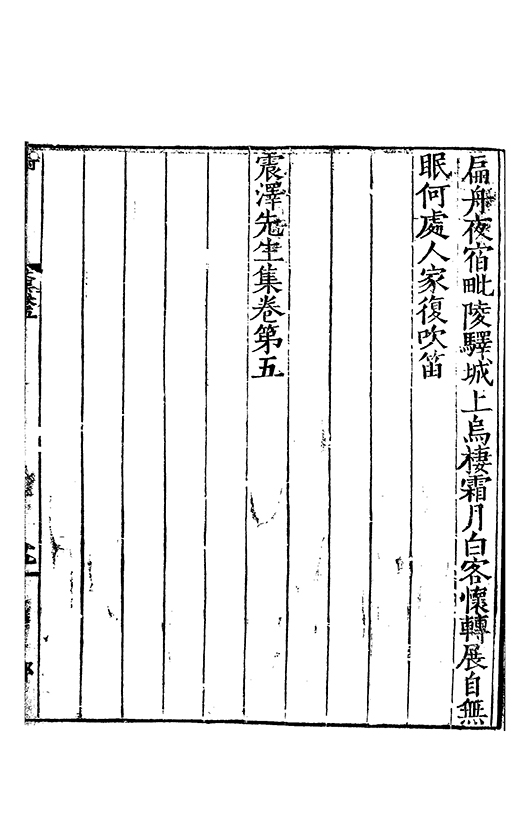 扁舟夜宿毗陵驛城上烏棲霜月白客懷轉展自無
眠何處人家復吹笛
震澤先生集卷第五